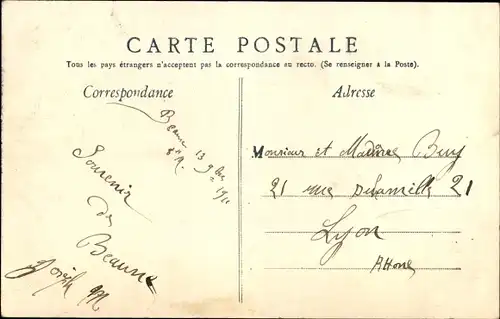 CARTE POSTALE
Tous les pays étrangers n'acceptent pas la correspondance au recto. (Se renseigner à la Poste).
Correspondance
Beaune
13 9bre 1911
Souvenir
de
Beaune
Joseph M
Adresse
Monsieur et Madame Buy
21 rue 21
Lyon
Rhone